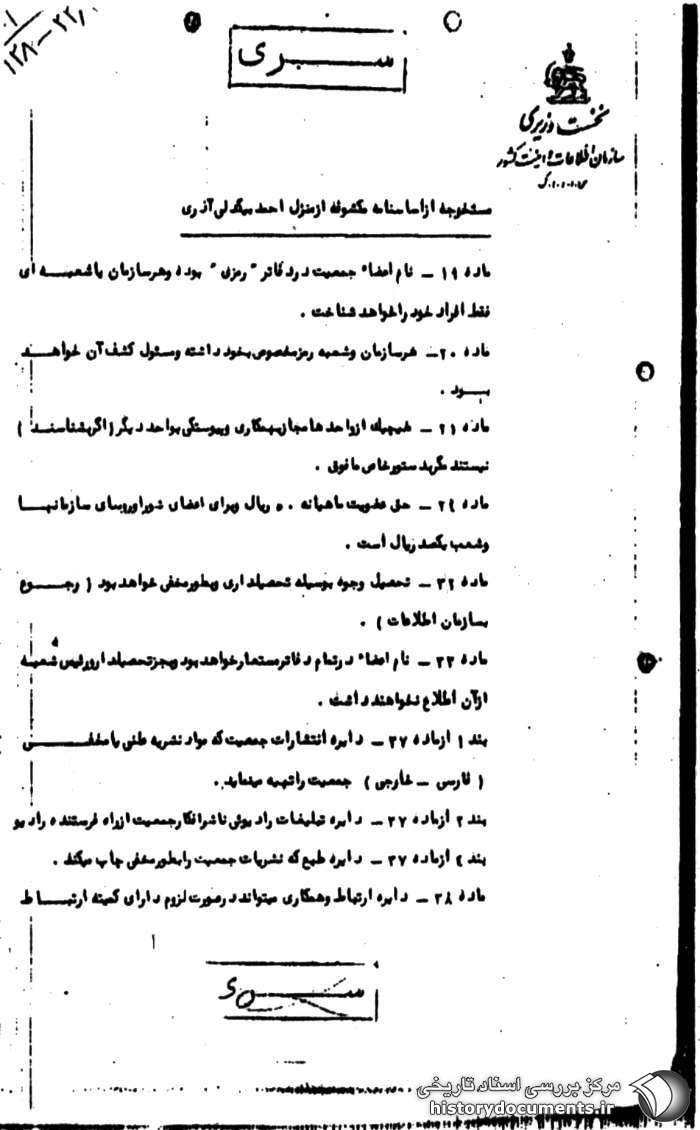 سری
نخست وزیری
سازمان اطلاعات و امنیت کشور
مستخرجه از اساسنامه مکشوفه از منزل احمد بیگدلی آذری
ماده ۱۹ – نام اعضاء جمعیت در دفاتر " رمزی " بوده و هر سازمان یا شعبه ای
فقط افراد خود را خواهد شناخت .
ماده ۲۰ – هر سازمان و شعبه رمز مخصوص بخود داشته و مسئول کشف آن خواهد
بود .
ماده ۲۱ – هیچیک از واحد ها مجاز بهمکاری و پیوستگی بواحد دیگر ( اگر بشناسند )
نیستند مگر بدستور خاص مافوق .
ماده ۲۹ – حق عضویت ماهیانه ۵۰ ریال و برای اعضای شورا و روسای سازمانها
و شعب یکصد ریال است .
ماده ۳۲ – تحصیل وجوه بوسیله تحصیلداری و بطور مخفی خواهد بود ( رجوع
بسازمان اطلاعات ) .
ماده ۳۳ – نام اعضاء در تمام دفاتر مستعار خواهد بود و بجز تحصیلدار و رئیس شعبه
از آن اطلاع نخواهند داشت .
بند ۱ از ماده ۳۷ – دایره انتشارات جمعیت که مواد نشریه علنی یا مخفی
( فارسی – خارجی ) جمعیت را تهیه مینماید .
بند ۲ از ماده ۳۷ – دایره تبلیغات رادیوئی ناشر افکار جمعیت از راه فرستنده رادیو
بند ۶ از ماده ۳۷ – دایره طبع که نشریات جمعیت را بطور مخفی چاپ میکند .
ماده ۳۸ – دایره ارتباط و همکاری میتواند در صورت لزوم دارای کمیته ارتباط
سری
مرکز بررسی اسناد تاریخی
historydocuments.ir